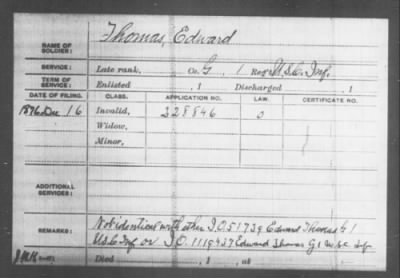 Thomas, Edward
NAME OF SOLDIER:
SERVICE: Late rank, Co. G, 1 Reg't U.S.C. Inf.
TERM OF SERVICE: Enlisted , 1 Discharged , 1
DATE OF FILING. CLASS. APPLICATION NO. LAW. CERTIFICATE NO.
1876 Dec 16 Invalid, 228846
Widow,
Minor,
ADDITIONAL SERVICES:
REMARKS: Not identical with other I.O. 51739 Edward Thomas G 1
U.S.C. Inf or I.O. 1119437 Edward Thomas G 1 U.S.C. Inf
Died , 1 , at